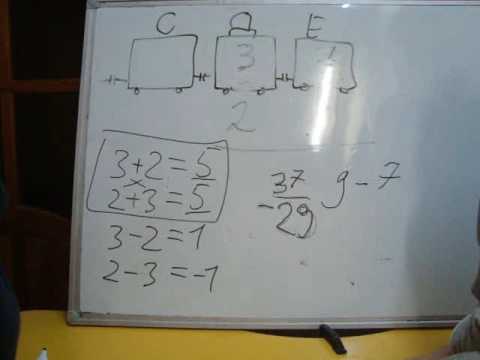 C Д E
3 1
2
3+2=5
2+3=5
3-2=1
2-3=-1
37
-29
9-7